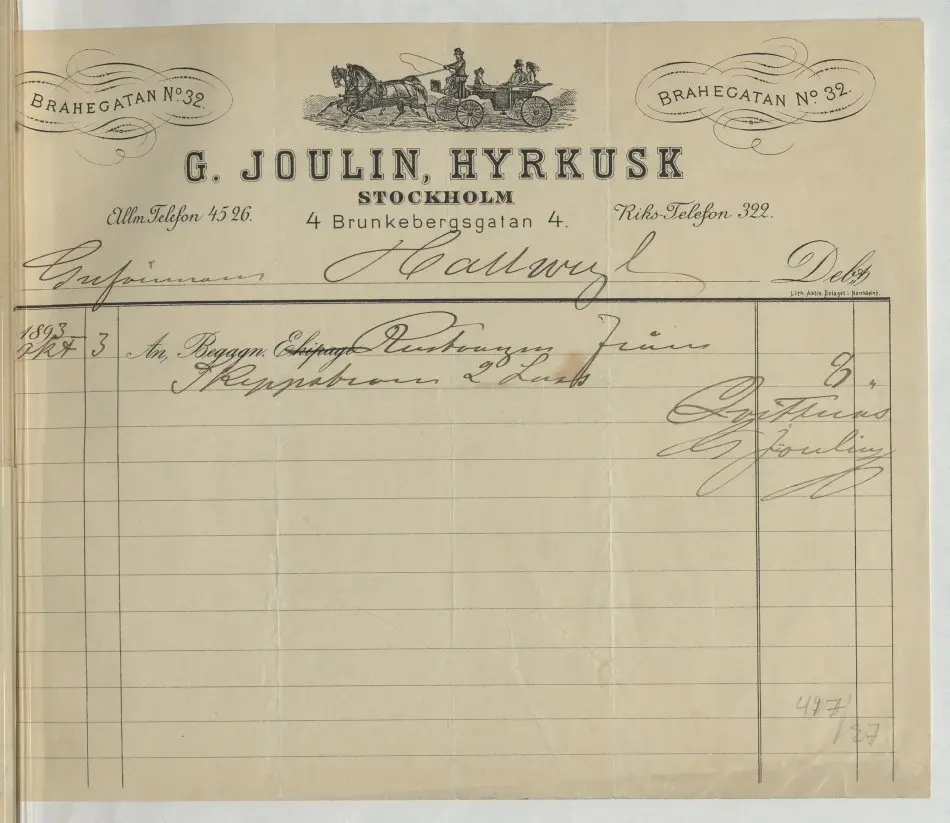 BRAHEGATAN No 32.
BRAHEGATAN No 32.
G. JOULIN, HYRKUSK
STOCKHOLM
Allm. Telefon 4526.
4 Brunkebergsgatan 4.
Riks-Telefon 322.
Grefvinnan Hallwyl Debet
Lith. Aktie Bolaget i Norrköping.
1893
Okt 3 An, Begagn. Ekipage Rustvagn från
Skeppsbron 2 Lass 8 "
Qvitteras
G Joulin
497